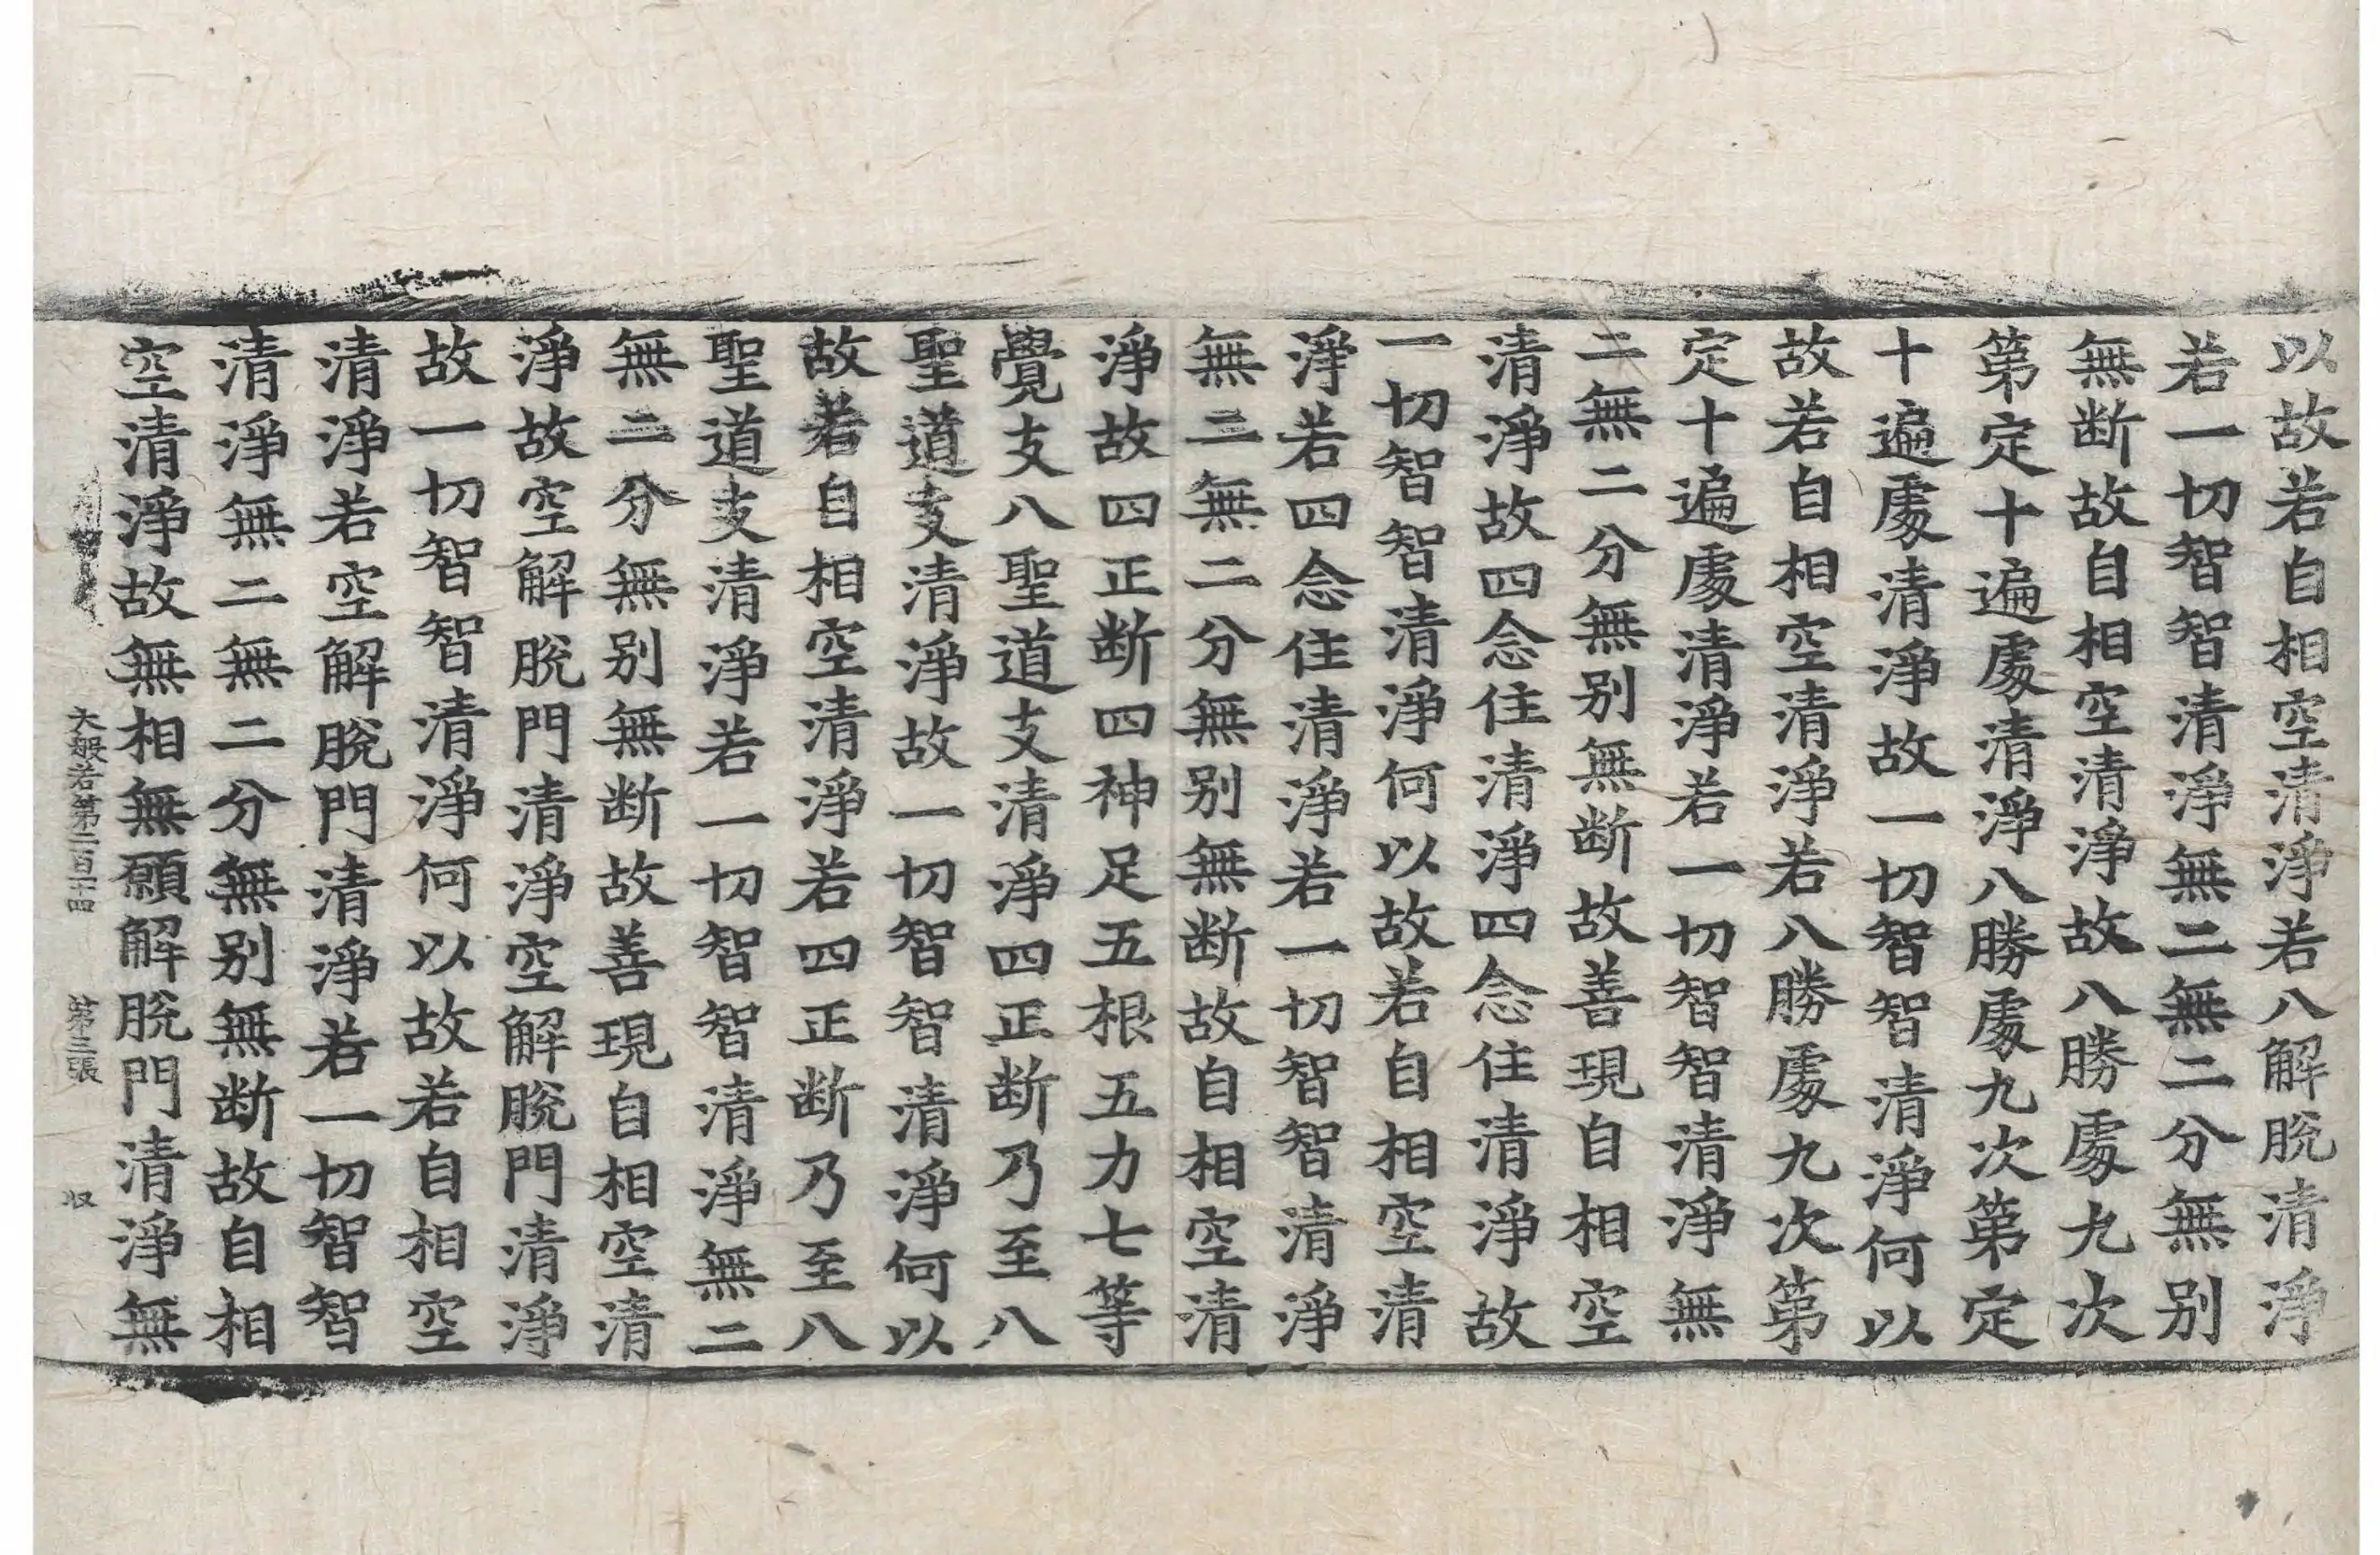 以故若自相空清淨若八解脫清淨
若一切智智清淨無二無二分無别
無断故自相空清淨故八勝處九次
第定十遍處清淨八勝處九次第定
十遍處清淨故一切智智清淨何以
故若自相空清淨若八勝處九次第
定十遍處清淨若一切智智清淨無
二無二分無别無断故善現自相空
清淨故四念住清淨四念住清淨故
一切智智清淨何以故若自相空清
淨若四念住清淨若一切智智清淨
無二無二分無别無断故自相空清
淨故四正断四神足五根五力七等
覺支八聖道支清淨四正断乃至八
聖道支清淨故一切智智清淨何以
故若自相空清淨若四正断乃至八
聖道支清淨若一切智智清淨無二
無二分無别無断故善現自相空清
淨故空解脫門清淨空解脫門清淨
故一切智智清淨何以故若自相空
清淨若空解脫門清淨若一切智智
清淨無二無二分無别無断故自相
空清淨故無相無願解脫門清淨無
大般若第二百十四 第三張 収